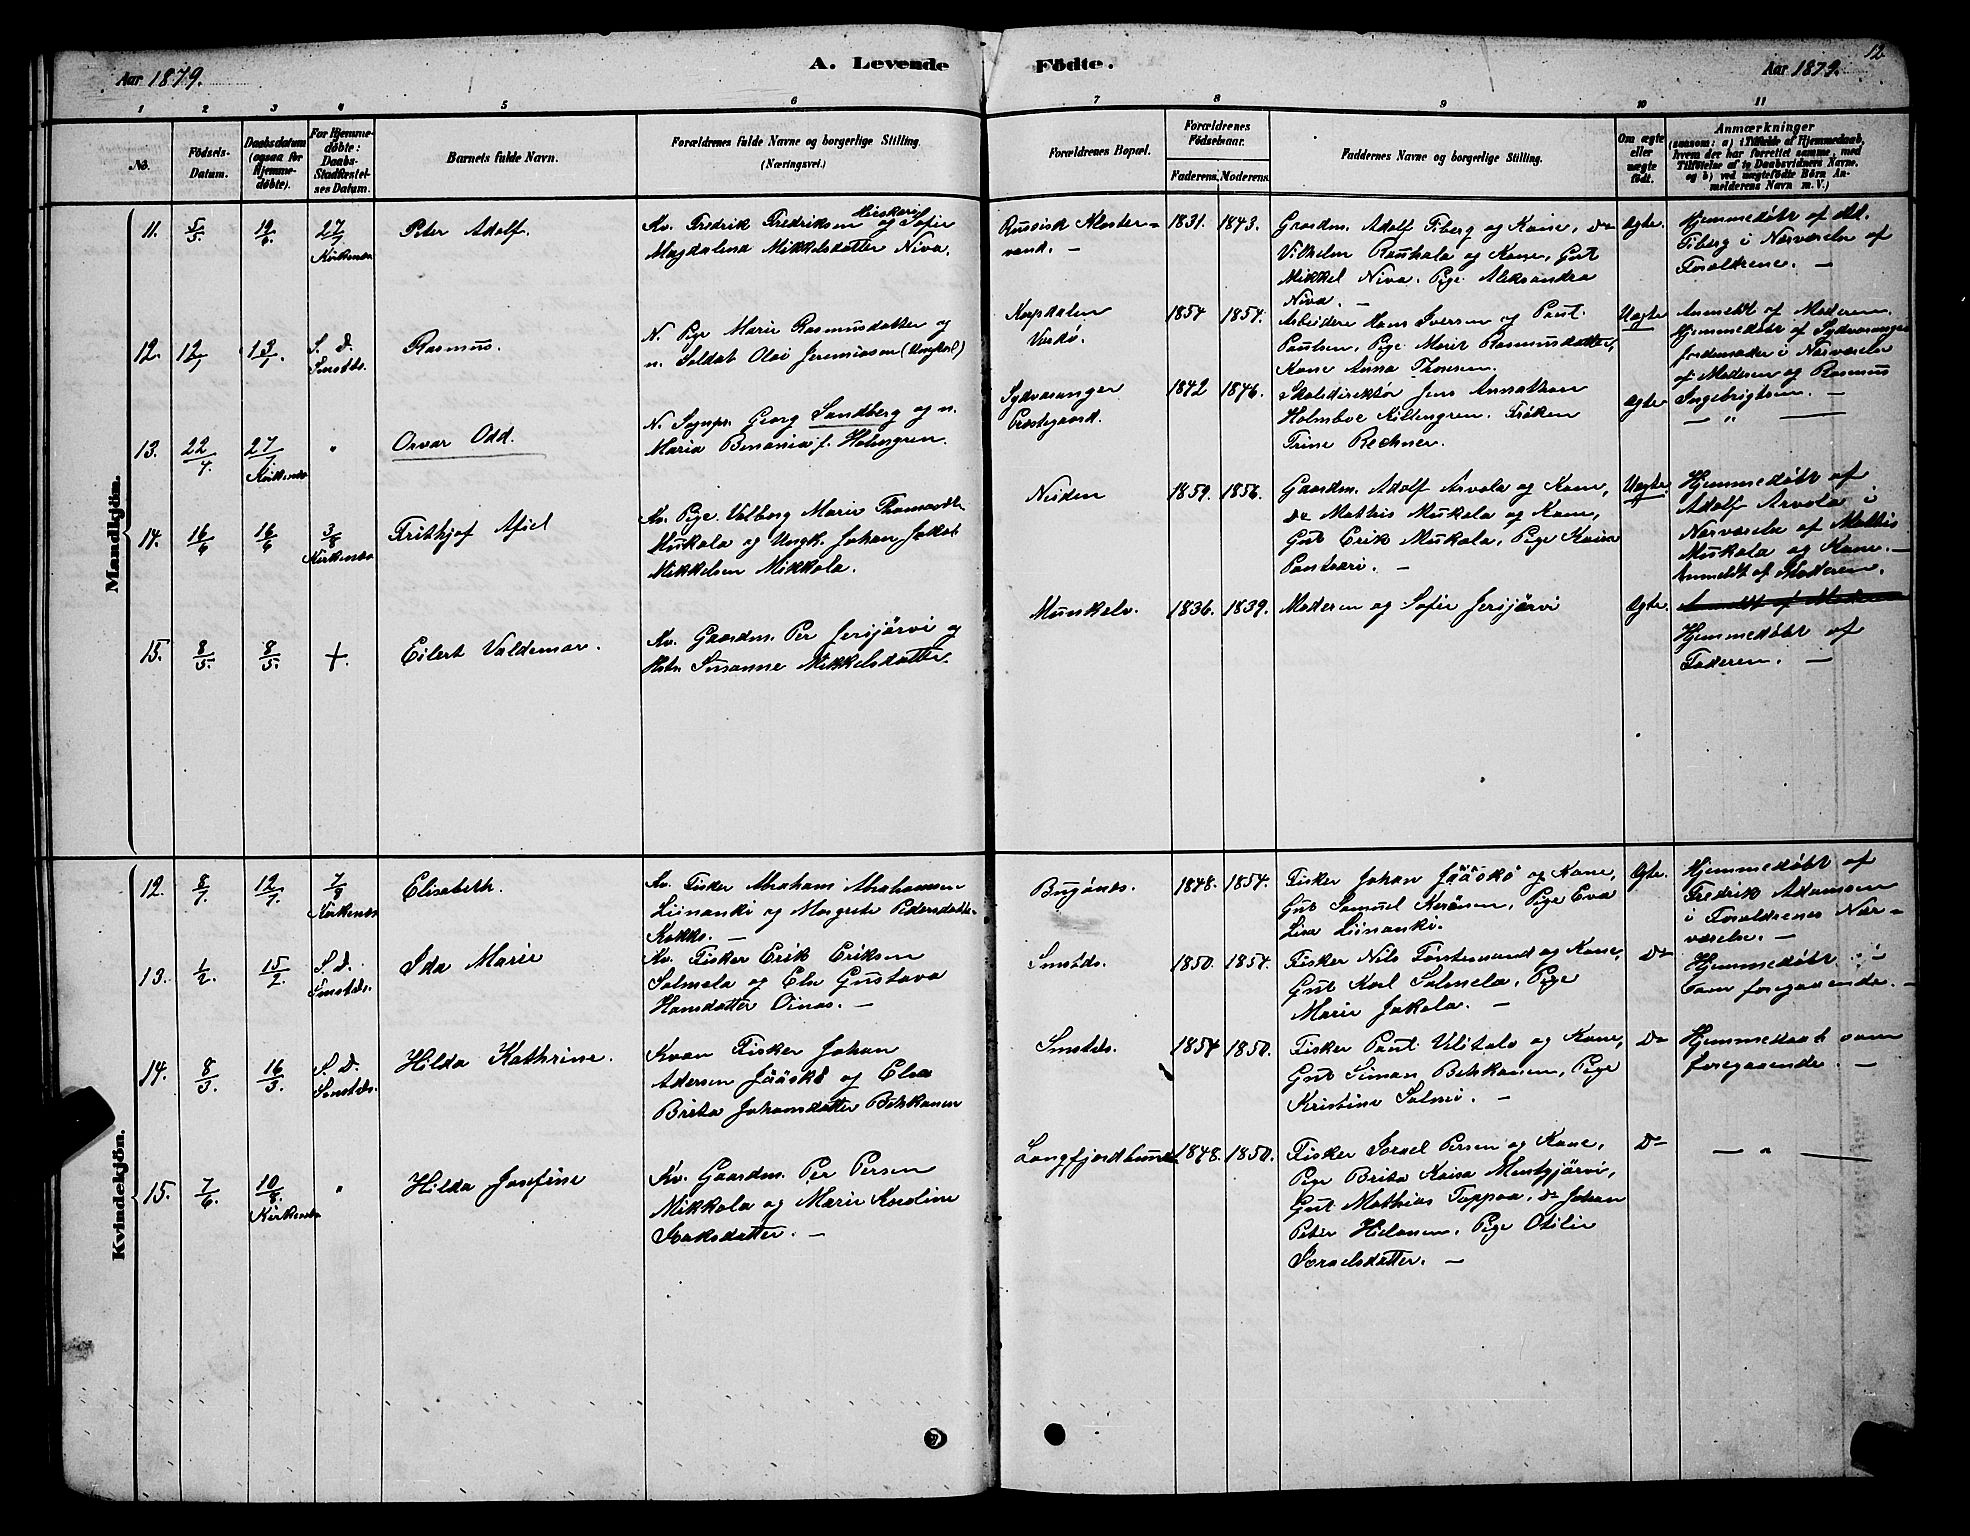 Aar 1879.
A. Levende
Födte.
Aar 1879.
12
1 2 3 4 5 6 7 8 9 10 11
No.
Födsels-
Datum.
Daabsdatum
(ogsaa for
Hjemme-
døbte).
For Hjemme-
døbte:
Daabs-
Stadfæstel-
ses Datum.
Barnets fulde Navn.
Forældrenes fulde Navne og borgerlige Stilling.
(Næringsvei.)
Forældrenes Bopæl.
Forældrenes
Födselsaar.
Faderens. Moderens.
Faddernes Navne og borgerlige Stilling.
Om ægte
eller
uægte
födt.
Anmærkninger
(saasom: a) i Tilfælde af Hjemmedaab,
hvem der har forrettet samme, med
Tilföielse af to Daabsvidners Navne,
og b) ved uægtefödte Börn An-
melderens Navn m. V.)
Mandkjön.
11. 5/5. 12/6. 27/7 Kirkenæs
Peter Adolf.
Kv. Fredrik Fredriksen Heiskari og Sofie
Magdalena Mikkelsdatter Niva.
Russisk Kloster-
vand. —
1831. 1843.
Gaardm. Adolf Fiberg og Kone, Do
Vilhelm Rauhala og Kone, Gut
Mikkel Niva. Pige Aleksandra
Niva. —
Ægte.
Hjemmedøbt af Ad.
Fiberg i Nærværelse af
Forældrene. —
12. 12/7 13/7. S. D. Smstds.
Rasmus.
N. Pige Marie Rasmusdatter og
n. Soldat Olai Jeremiasen (Ungkarl)
Karpdalen
Vardø.
1854 1854.
Arbeidere Hans Iversen og Paul
Paulsen, Pige Marit Rasmusdatter,
Kone Anna Thomsen.
Uægte
Anmeldt af Moderen.
Hjemmedøbt af Sydvaranger
Jordemoder i Nærværelse
af Moderen og Rasmus
Ingebrigtsen. —
13. 22/4. 27/7 Kirkenæs "
Orvar Odd.
N. Sognpr. Georg Sandberg og n.
Maria Benania f. Holmgren.
Sydvaranger
Præstegaard.
1842 1846.
Skoledirektør Jens Annathon
Holmboe Killengren. Frøken
Trine Rechner.
Ægte
— " —
14. 16/6 16/6 3/8 Kirkenæs
Frithjof Afiel
Kv. Pige Valborg Marie Thomasdtr.
Mukala og Ungk. Johan Jakob
Mikkelsen Mikkola.
Neiden
1859. 1856.
Gaardm. Adolf Arvola og Kone,
Do Mathis Mukala og Kone,
Gut Erik Mukala, Pige Kaisa
Pantsari. —
Uægte
Hjemmedøbt af
Adolf Arvola i
Nærværelse af Mathis
Mukala og Kone. —
Anmeldt af Moderen.
15. 8/5. 8/5. +.
Eilert Valdemar.
Kv. Gaardm. Per Jerijärvi og
Hstr. Susanne Mikkelsdatter.
Munkelv.
1836. 1839.
Moderen og Sofie Jerijärvi
Ægte.
Anmeldt af Moderen
Hjemmedøbt af
Faderen. —
Kvindekjön.
12. 8/7. 12/7. 7/9 Kirkenæs
Elisabeth.
Kv. Fisker Abraham Abrahamsen
Liinanki og Margrete Pedersdatter
Kokko. —
Bugønæs.
1848. 1854.
Fisker Johan Jääskö og Kone,
Gut Samuel Keränen, Pige Eva
Lisa Liinanki.
Ægte.
Hjemmedøbt af
Fredrik Adamsen
i Forældrenes Nær-
værelse. —
13. 1/2. 15/2 S. D. Smstds.
Ida Marie
Kv. Fisker Erik Eriksen
Salmela og Else Gustava
Hansdatter Oinas. —
Smstds.
1850. 1854.
Fisker Nils Torstensrud og Kone,
Gut Karl Salmela, Pige
Marie Jakola. —
Do
Hjemmedøbt
som foregaaende. —
14. 8/3. 16/3. S. D. Smstds.
Hilda Kathrine.
Kvæn Fisker Johan
Adersen Jääskö og Elsa
Brita Johansdatter Betskanen
Smstds.
1854 1850.
Fisker Paul Ulitalo og Kone,
Gut Simon Betskanen, Pige
Kristine Salmi. —
Do
Hjemmedøbt som
foregaaende. —
15. 7/6. 10/8. Kirkenæs "
Hilda Josefine
Kv. Gaardm. Per Persen
Mikkola og Marie Karoline
Isaksdatter. —
Langfjordbund
1848. 1850.
Fisker Israel Persen og Kone,
Pige Brita Kaisa Mustajärvi,
Gut Mathias Tappoa, Do Johan
Peter Hietanen, Pige Otilie
Israelsdatter. —
Do
— " —